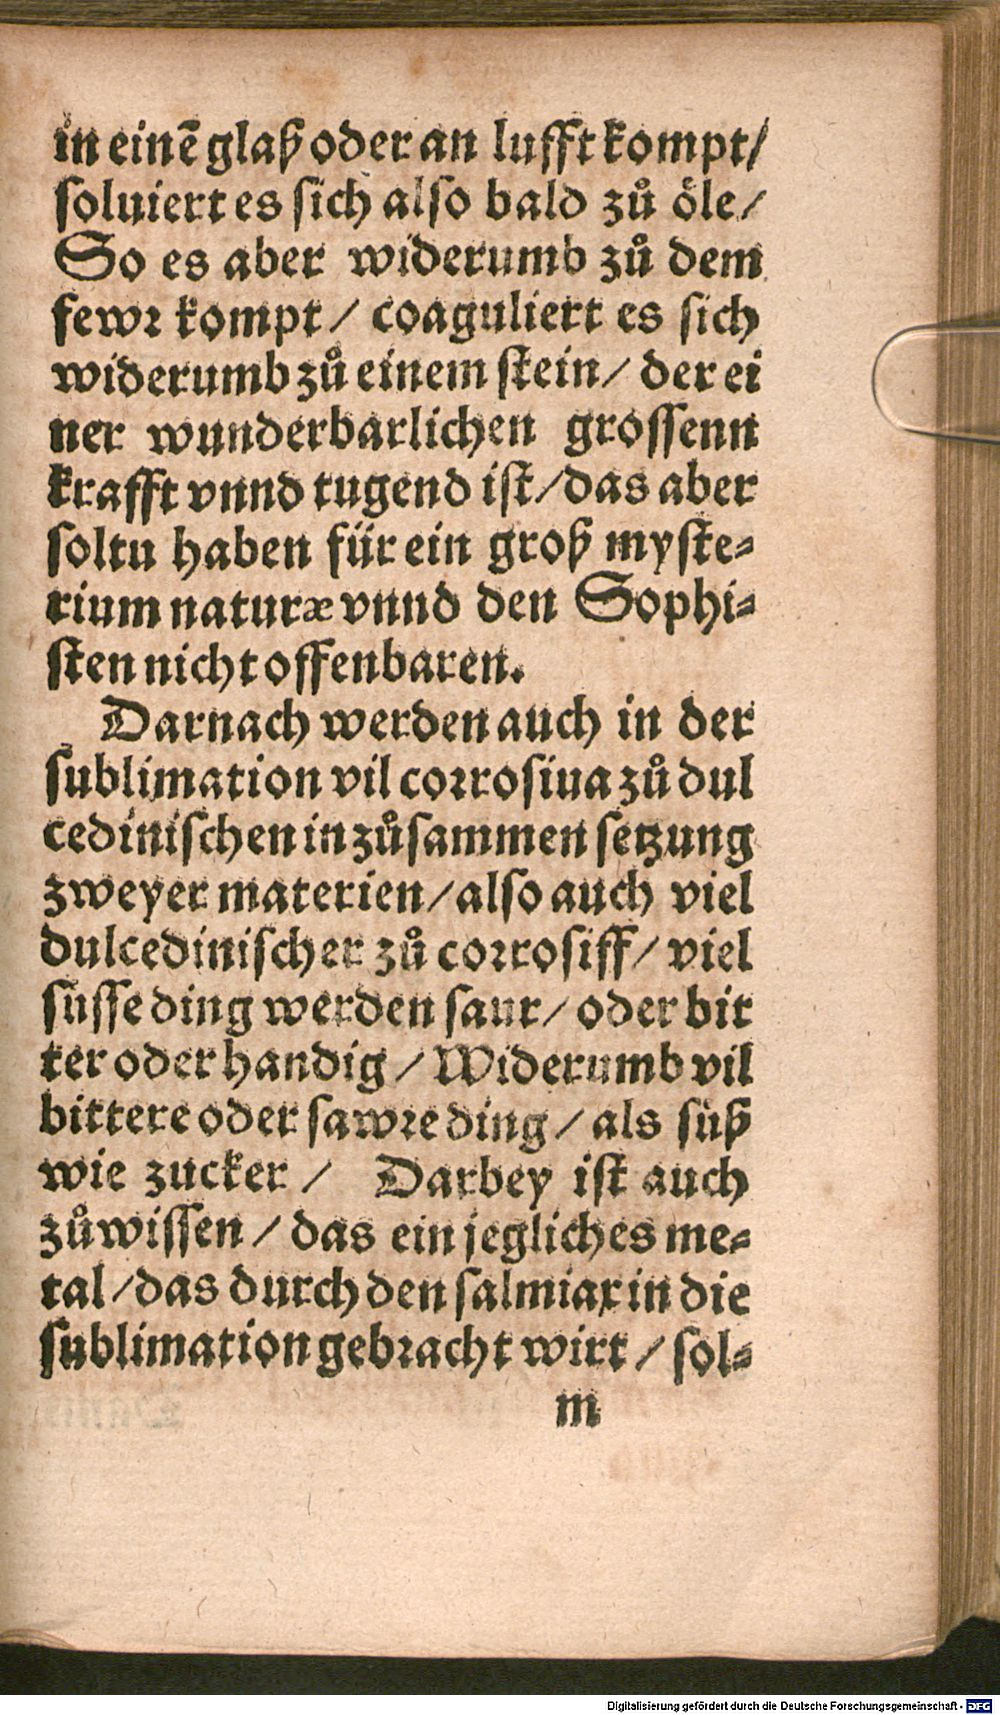 in einē glaß oder an lufft kompt/
soluiert es sich also bald zů öle/
So es aber widerumb zů dem
fewr kompt/ coaguliert es sich
widerumb zů einem stein/ der ei
ner wunderbarlichen grossenn
krafft vnnd tugend ist/ das aber
soltu haben für ein groß myste-
rium naturæ vnnd den Sophi-
sten nicht offenbaren.
Darnach werden auch in der
sublimation vil corrosiua zů dul
cedinischen in zůsammen setzung
zweyer materien/ also auch viel
dulcedinischer zů corrosiff/ viel
süsse ding werden saur/ oder bit
ter oder handig/ Widerumb vil
bittere oder sawre ding/ als süß
wie zucker/ Darbey ist auch
zůwissen/ das ein jegliches me-
tal/ das durch den salmiax in die
sublimation gebracht wirt/ sol-
m
Digitalisierung gefördert durch die Deutsche Forschungsgemeinschaft - DFG